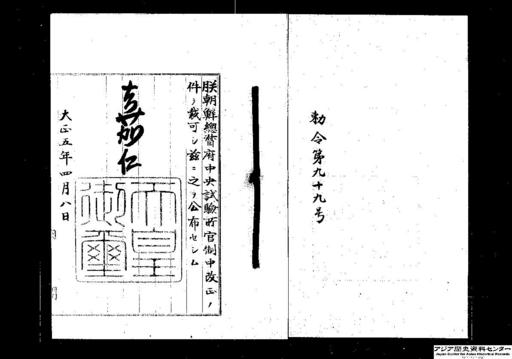 勅令第九十九号
朕朝鮮總督府中央試驗所官制中改正ノ
件ヲ裁可シ茲ニ之ヲ公布セシム
嘉仁
天皇
御璽
大正五年四月八日
アジア歴史資料センター
Japan Center for Asian Historical Records